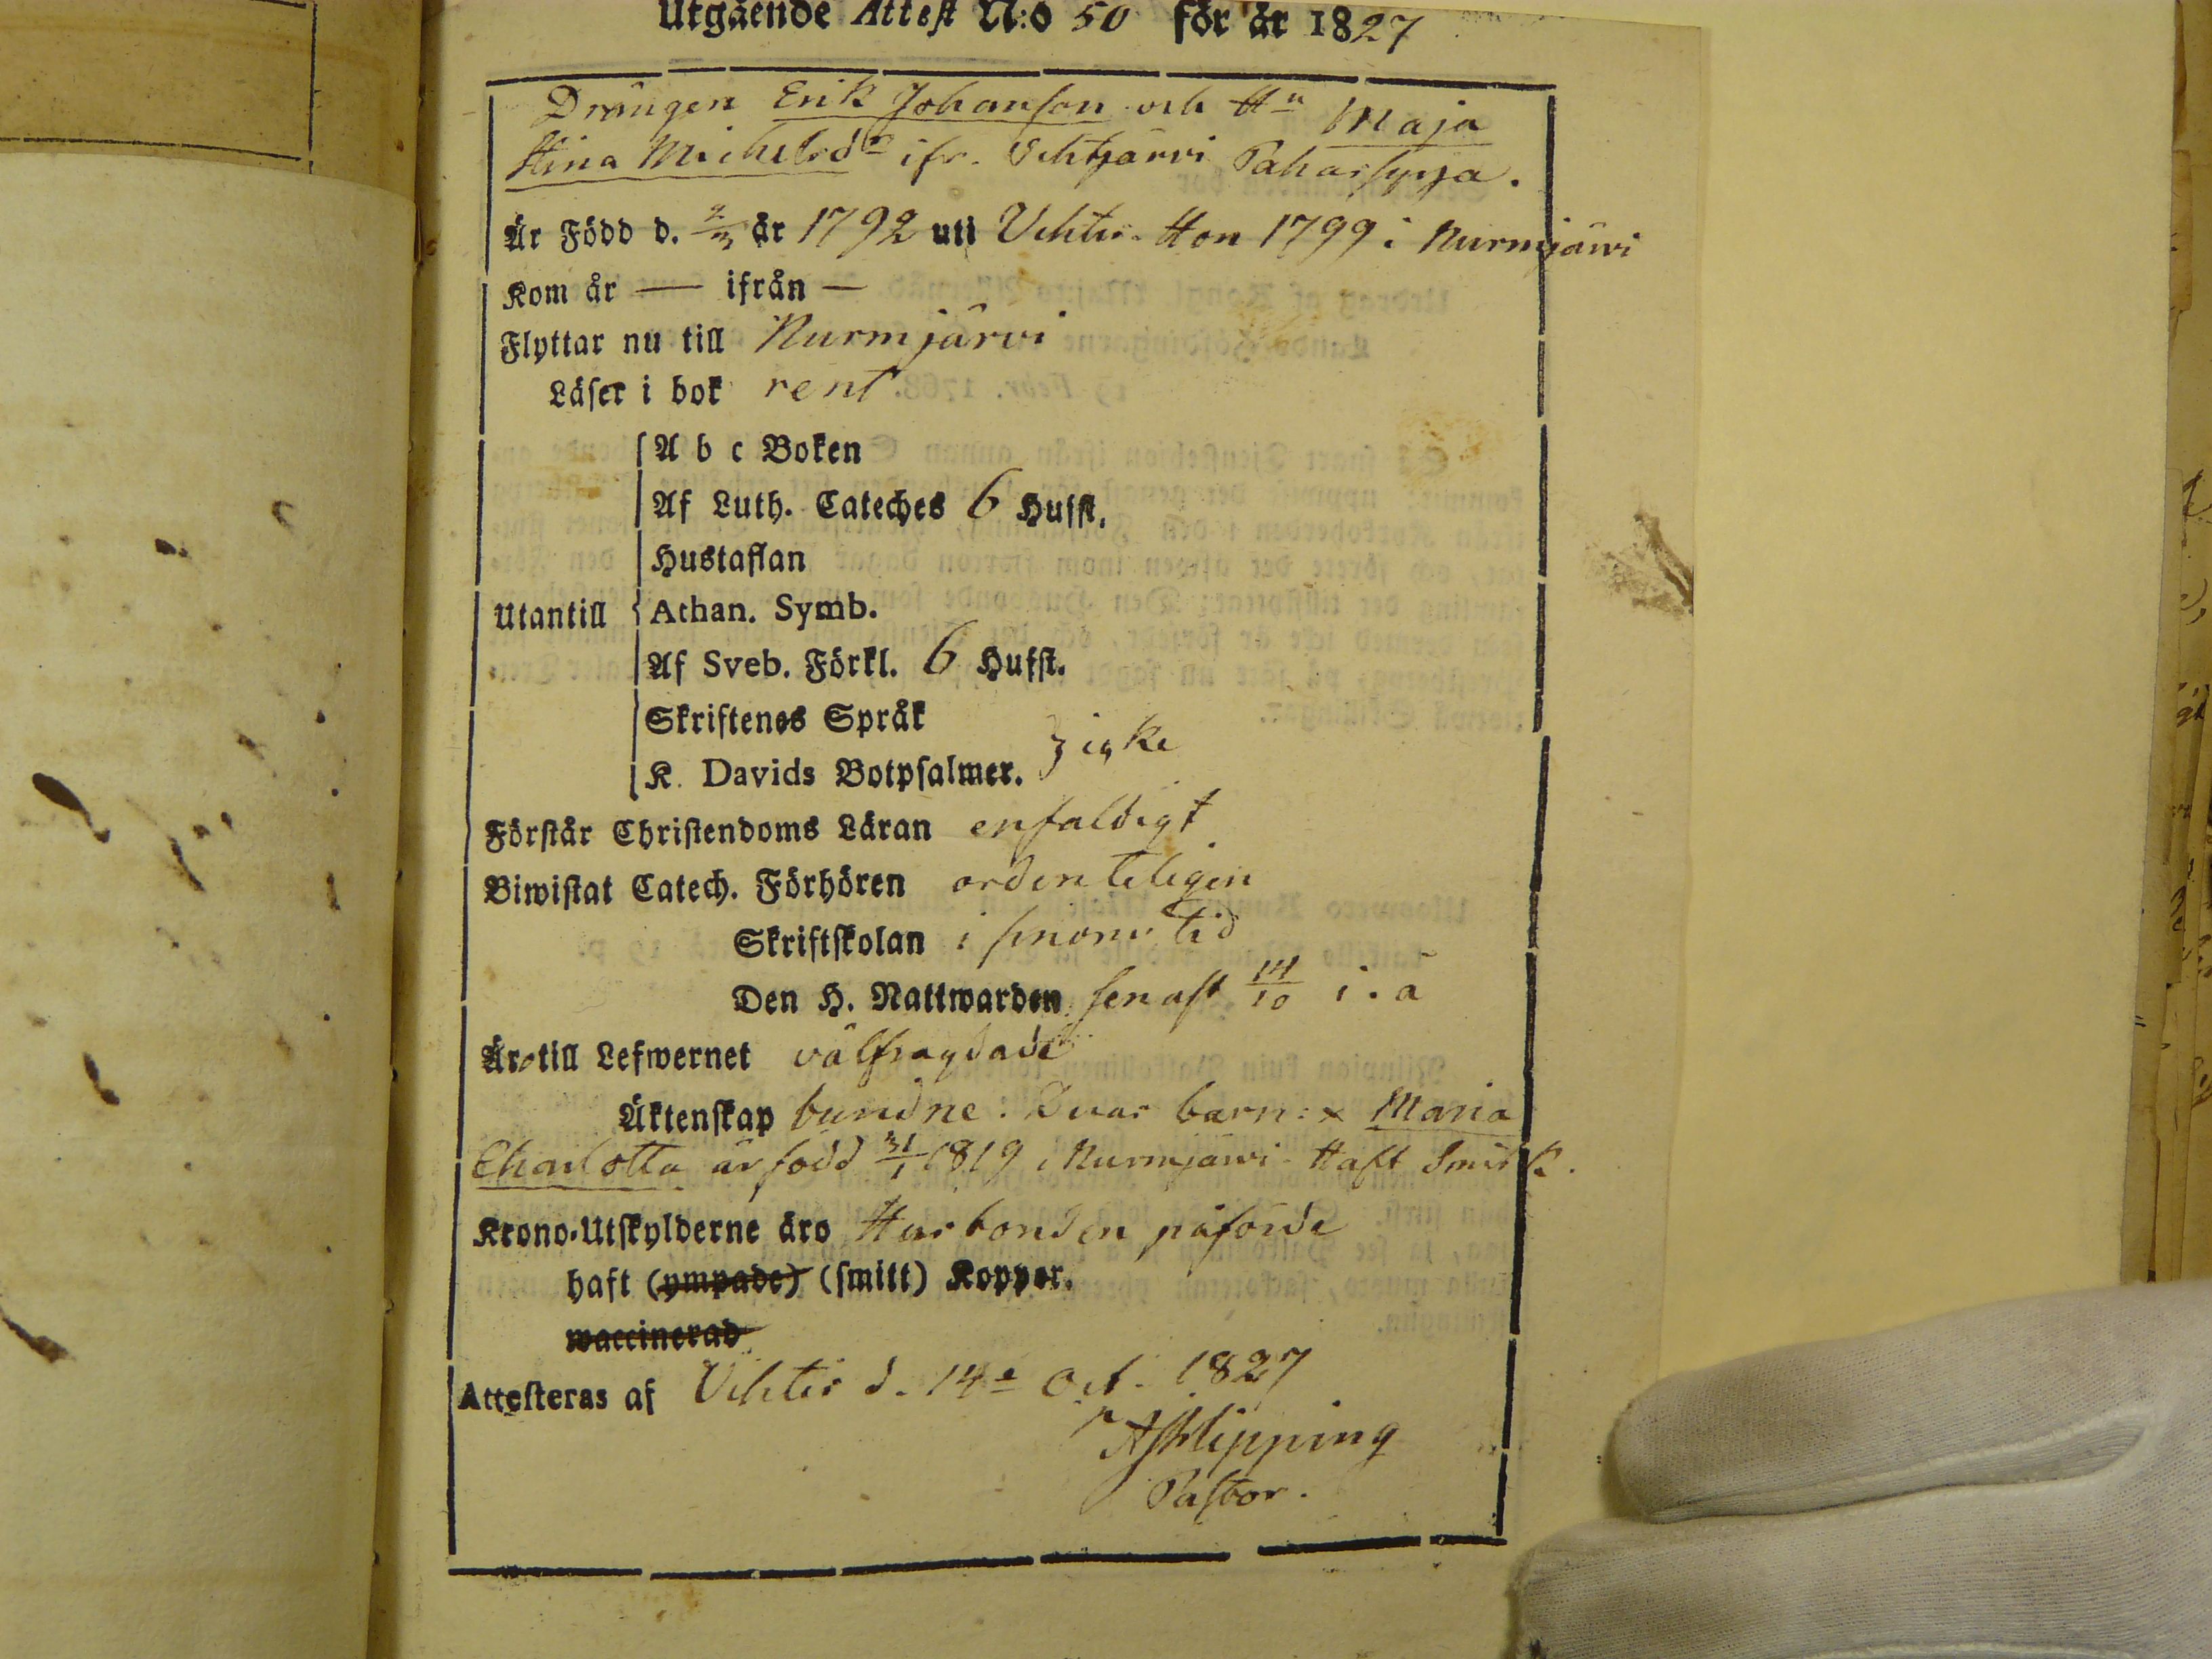 Utgående Attest N:o 50 för år 1827
Drängen Erik Johansson och Hu Maja
Stina Michelsdr ifr. Vihtjärvi Pahassyrja.
Är Född d. 2/3 år 1792 uti Vihtis. Hon 1799 i Nurmjärvi
Kom år — ifrån —
Flyttar nu till Nurmjärvi
Läser i bok rent
A b c Boken
Af Luth. Cateches 6 Hufst.
Hustaflan
Utantill Athan. Symb.
Af Sveb. Förkl. 6 Hufst.
Skriftenes Språk
K. Davids Botpsalmer. } icke
Förstår Christendoms Läran enfaldigt
Biwistat Catech. Förhören ordenteligen
Skriftskolan i sinom tid
Den H. Nattwarden senast 14/10 i. å
Äro till Lefwernet välfrägdade
Äktenskap bundne: Deras barn: x Maria
Charlotta är född 31/1 1819 i Nurmjärvi. Haft Smitk.
Krono-Utskylderne äro Husbonden påförde
haft (ympade) (smitt) Koppor.
waccinerad
Attesteras af Vihtis d. 14e Oct. 1827
Pastor.